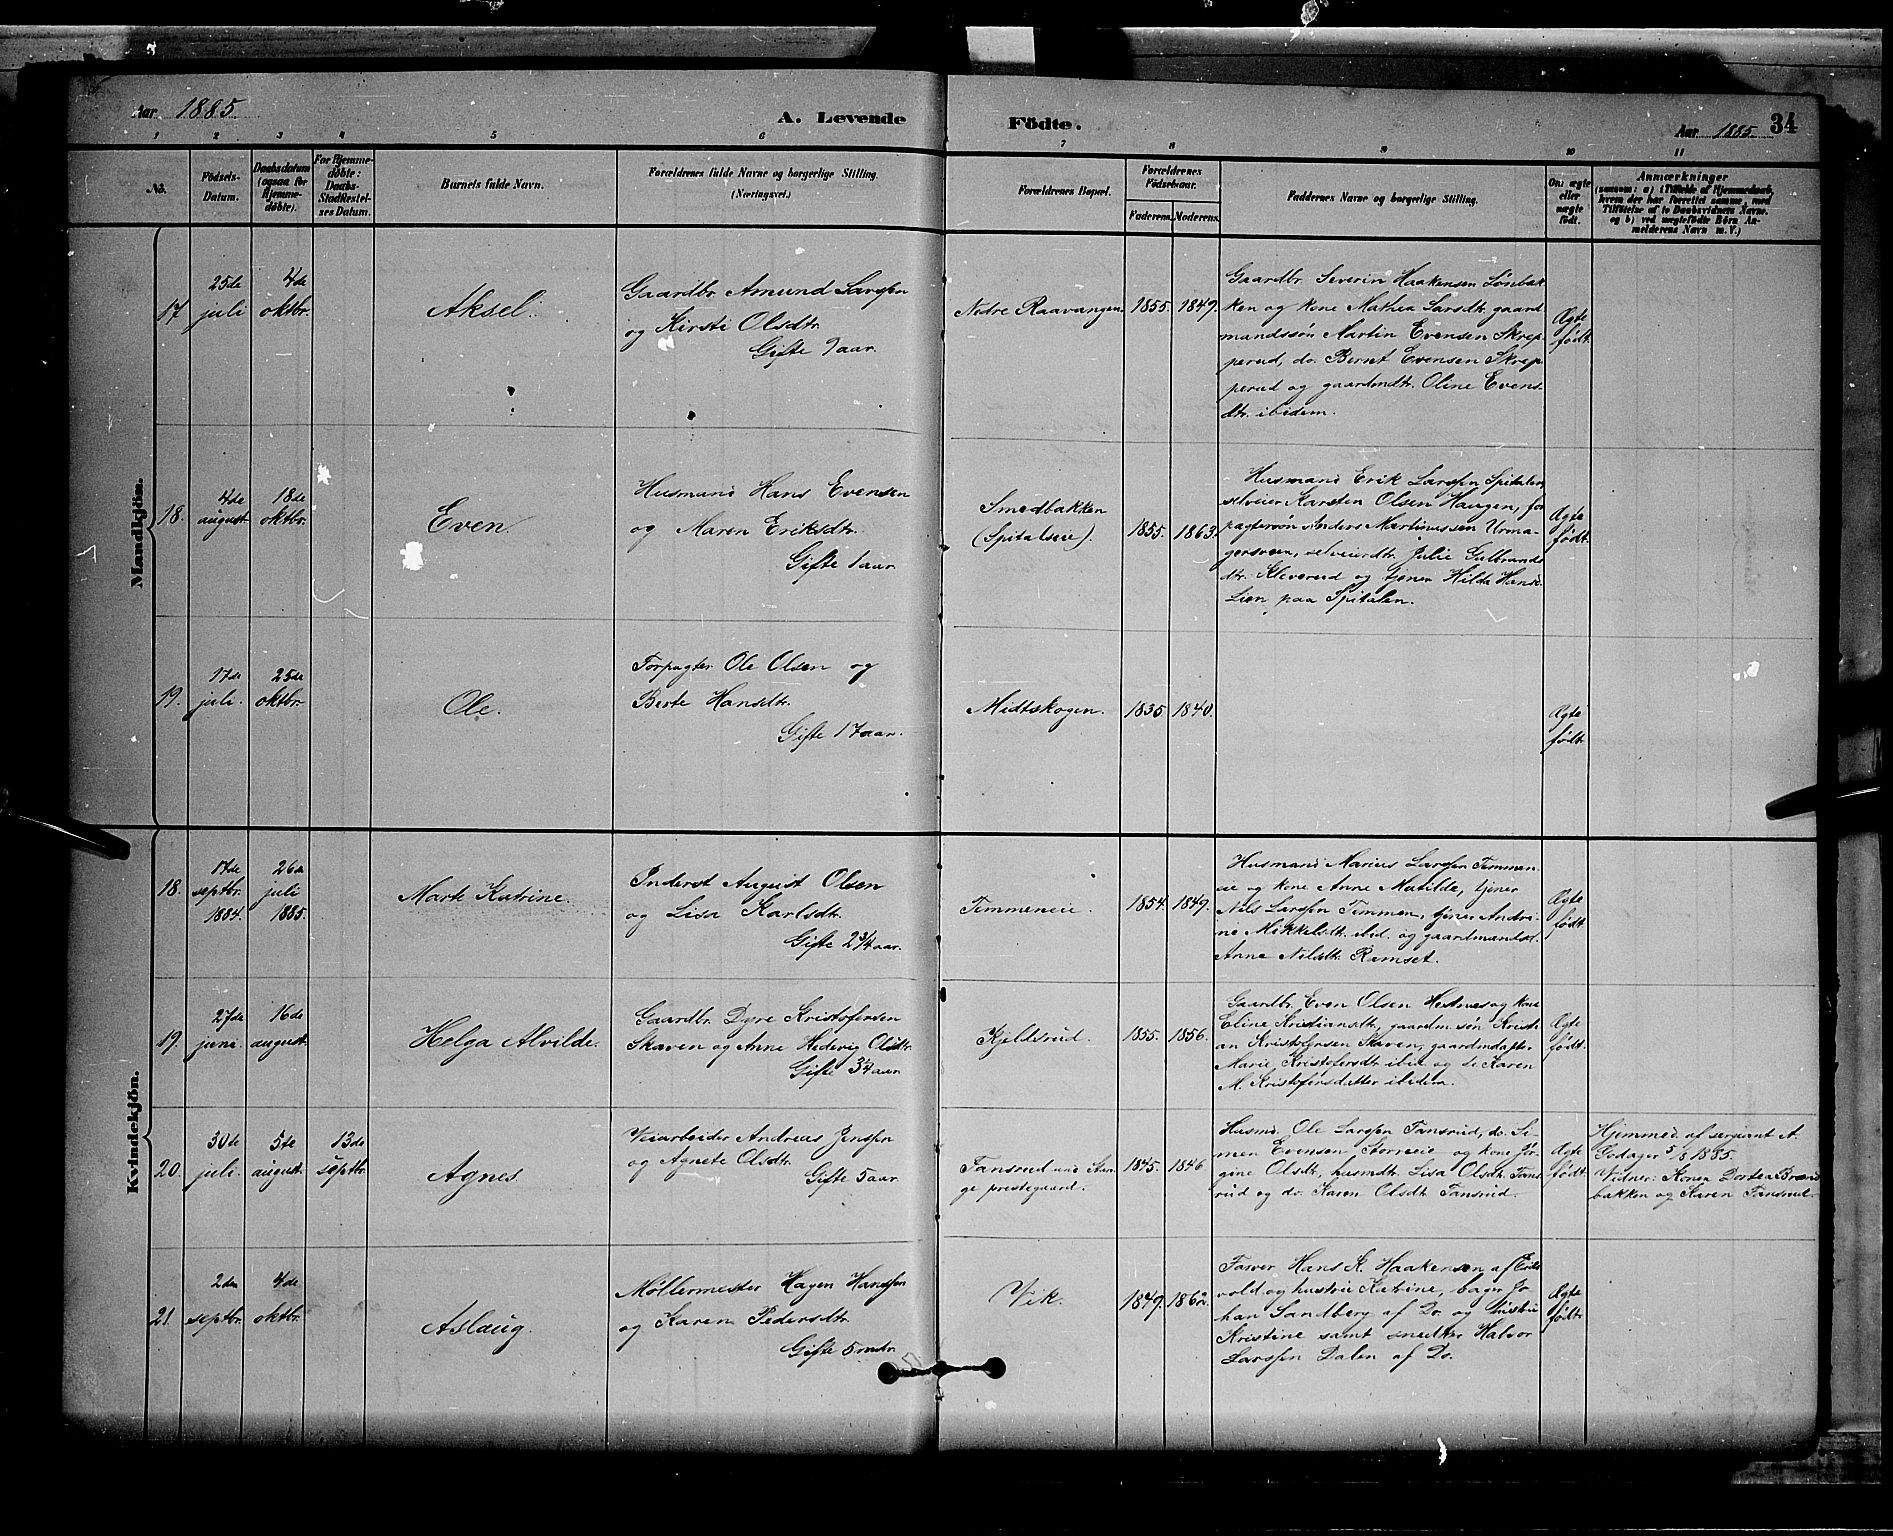 Aar 1885. A. Levende Födte. Aar 1885. 34
1 2 3 4 5 6 7 8 9 10 11
No.
Födsels-
Datum.
Daabsdatum
(ogsaa for
Hjemme-
döbte).
For Hjemme-
döbte:
Daabs-
Stadfæstel-
ses Datum.
Barnets fulde Navn.
Forældrenes fulde Navne og borgerlige Stilling.
(Næringsvei.)
Forældrenes Bopæl.
Forældrenes
Födselsaar.
Faderens. Moderens.
Faddernes Navne og borgerlige Stilling.
Om ægte
eller
uægte
födt.
Anmærkninger
(saasom: a) i Tilfælde af Hjemmedaab,
hvem der har forrettet samme, med
Tilföielse af to Daabsvidners Navne,
og b) ved uægtefödte Börn An-
melderens Navn m. V.)
Mandkjön.
17
25de
juli
4de
oktbr.
Aksel.
Gaardbr. Amund Larssen
og Kirsti Olsdtr.
Gifte 9 aar.
Nedre Raavangen.
1855. 1849.
Gaardbr. Severin Haakensen Lønbak-
ken og kone Mathea Larsdtr. gaard-
mandssøn Martin Evensen Skrep-
perud, do. Bernt Evensen Skrep-
perud og gaardmdtr. Oline Evens-
dtr. ibidem.
Ægte
født.
18.
4de
august
18de
oktbr.
Even.
Husmand Hans Evensen
og Maren Eriksdtr.
Gifte 1 aar.
Smedbakken
(Spitalseie).
1855. 1863.
Husmand Erik Larssen Spitalen,
selveier Karsten Olsen Haugen, for-
pagtersøn Anders Martinussen Urma-
gersveen, selveierdtr. Julie Gulbrands-
dtr. Kleverud og tjener Hilda Hansd.
Lien paa Spitalen.
Ægte
født.
19.
17de
juli.
25de
oktbr.
Ole.
Forpagter Ole Olsen og
Berte Hansdtr.
Gifte 17 aar.
Midtskogen.
1835 1840.
Ægte
født.
Kvindekjön.
18.
17de
septbr.
1884.
26de
juli
1885.
Marte Katrine.
Inderst August Olsen
og Lisa Karlsdtr.
Gifte 2 3/4 aar.
Timmeneie.
1854. 1849.
Husmand Marius Larssen Timmen-
eie og kone Anne Matilde, tjener
Nils Larssen Timmen, tjener Andri-
ne Mikkelsdtr. ibid. og gaardmandsd.
Anne Nilsdtr. Rimset.
Ægte
født.
19.
27de
juni.
16de
august.
Helga Alvilde.
Gaardbr. Dyre Kristofersen
Skaven og Anne Hedevig Olsdtr.
Gifte 3/4 aar
Kjeldsrud.
1855. 1856.
Gaardbr. Even Olsen Hestnes og kone
Eline Kristiansdtr., gaardm.søn Kristi-
an Kristofersen Skaven, gaardmdatter
Marie Kristofersdtr. ibid og do Karen
M. Kristofersdatter ibidem.
Ægte
født.
20.
30de
juli.
5te
august.
13de
septbr.
Agnes.
Veiarbeider Andreas Jenssen
og Agnete Olsdtr.
Gifte 5 aar.
Tansrud und. Stan-
ge prestegaard.
1845. 1846
Husmd. Ole Larssen Tansrud, do. Si-
men Evensen Storreeie og kone Jør-
gine Olsdtr., husmdtr. Lisa Olsdtr. Tans-
rud og do. Karen Olsdtr. Tansrud.
Ægte
født.
Hjemmed. af sergiant A.
Godager 5/8 1885.
Vidner: Konen Dortea Brænd-
bakken og Karen Tansrud.
21.
2den
septbr.
4de
oktbr.
Aslaug.
Møllermester Hagen Hanssen
og Karen Pedersdtr.
Gifte 5 mdr.
Vik.
1849. 1862.
Farver Hans K. Haakensen af Eids-
vold og hustru Katrine, bager Jo-
han Sandberg af Do. og hustru
Kristine samt snedker Halvor
Larssen Dalen af Do.
Ægte
født.